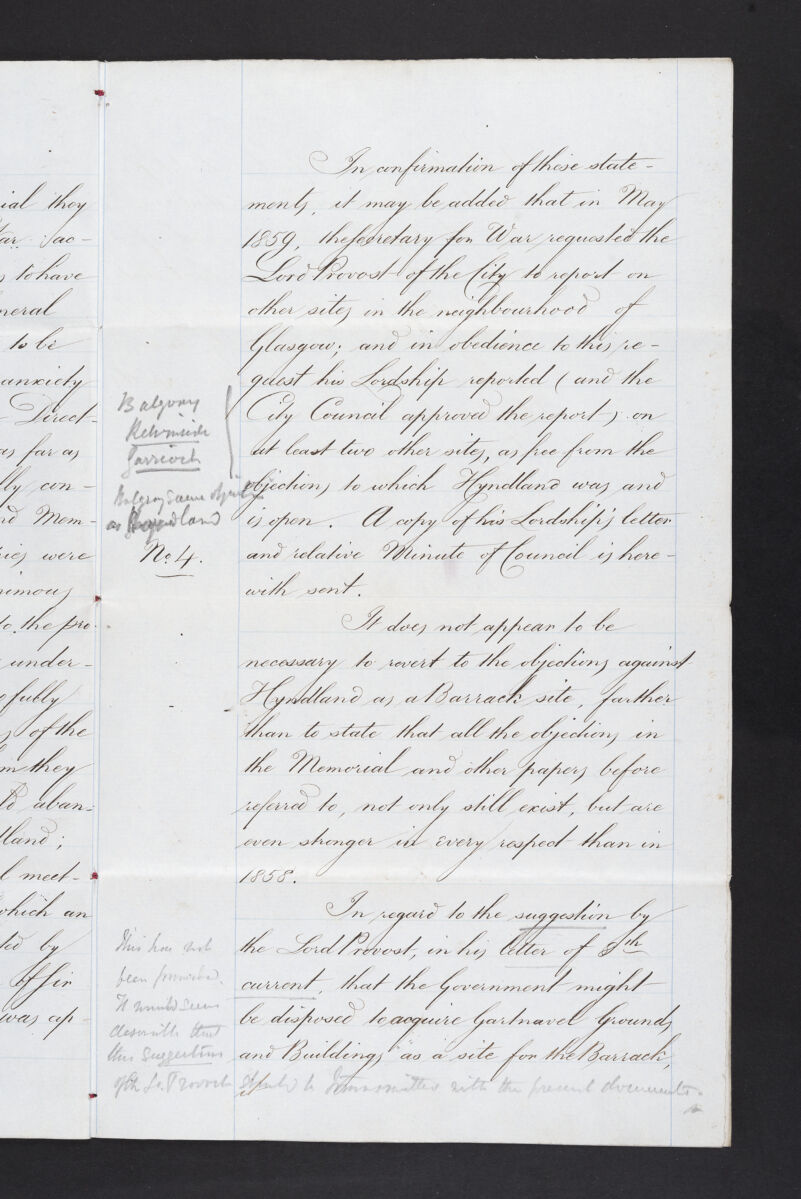 ial they
ar Sac-
s to have
neral
to be
anxiety
Direct-
as far as
lly con-
nd Mem-
ries were
nimous
to the pro-
under-
efully
s of the
m they
aban-
tland;
l meet-
which an
ted by
of Sir
was ap-
In confirmation of those state-
ments, it may be added that in May
1859, the Secretary for War requested the
Lord Provost of the City to report on
other sites in the neighbourhood of
Glasgow; and in obedience to this re-
quest his Lordship reported (and the
City Council approved the report) on
at least two other sites, as free from the
objections to which Hyndland was and
is open. A copy of his Lordship's letter
and relative Minute of Council is here-
with sent.
Balgray
Kelvinside
Garrioch
Balgray same objection
as Hyndland
No. 4.
It does not appear to be
necessary to revert to the objections against
Hyndland as a Barrack site, farther
than to state that all the objections in
the Memorial and other papers before
referred to, not only still exist, but are
even stronger in every respect than in
1858.
In regard to the suggestion by
the Lord Provost, in his letter of 5th
current, that the Government might
be disposed to acquire Gartnavel Grounds
and Buildings "as a site for the Barrack,
if
This has not
been forwarded.
It would seem
desirable that
this suggestion
of the Ld. Provost should be transmitted with the present documents.